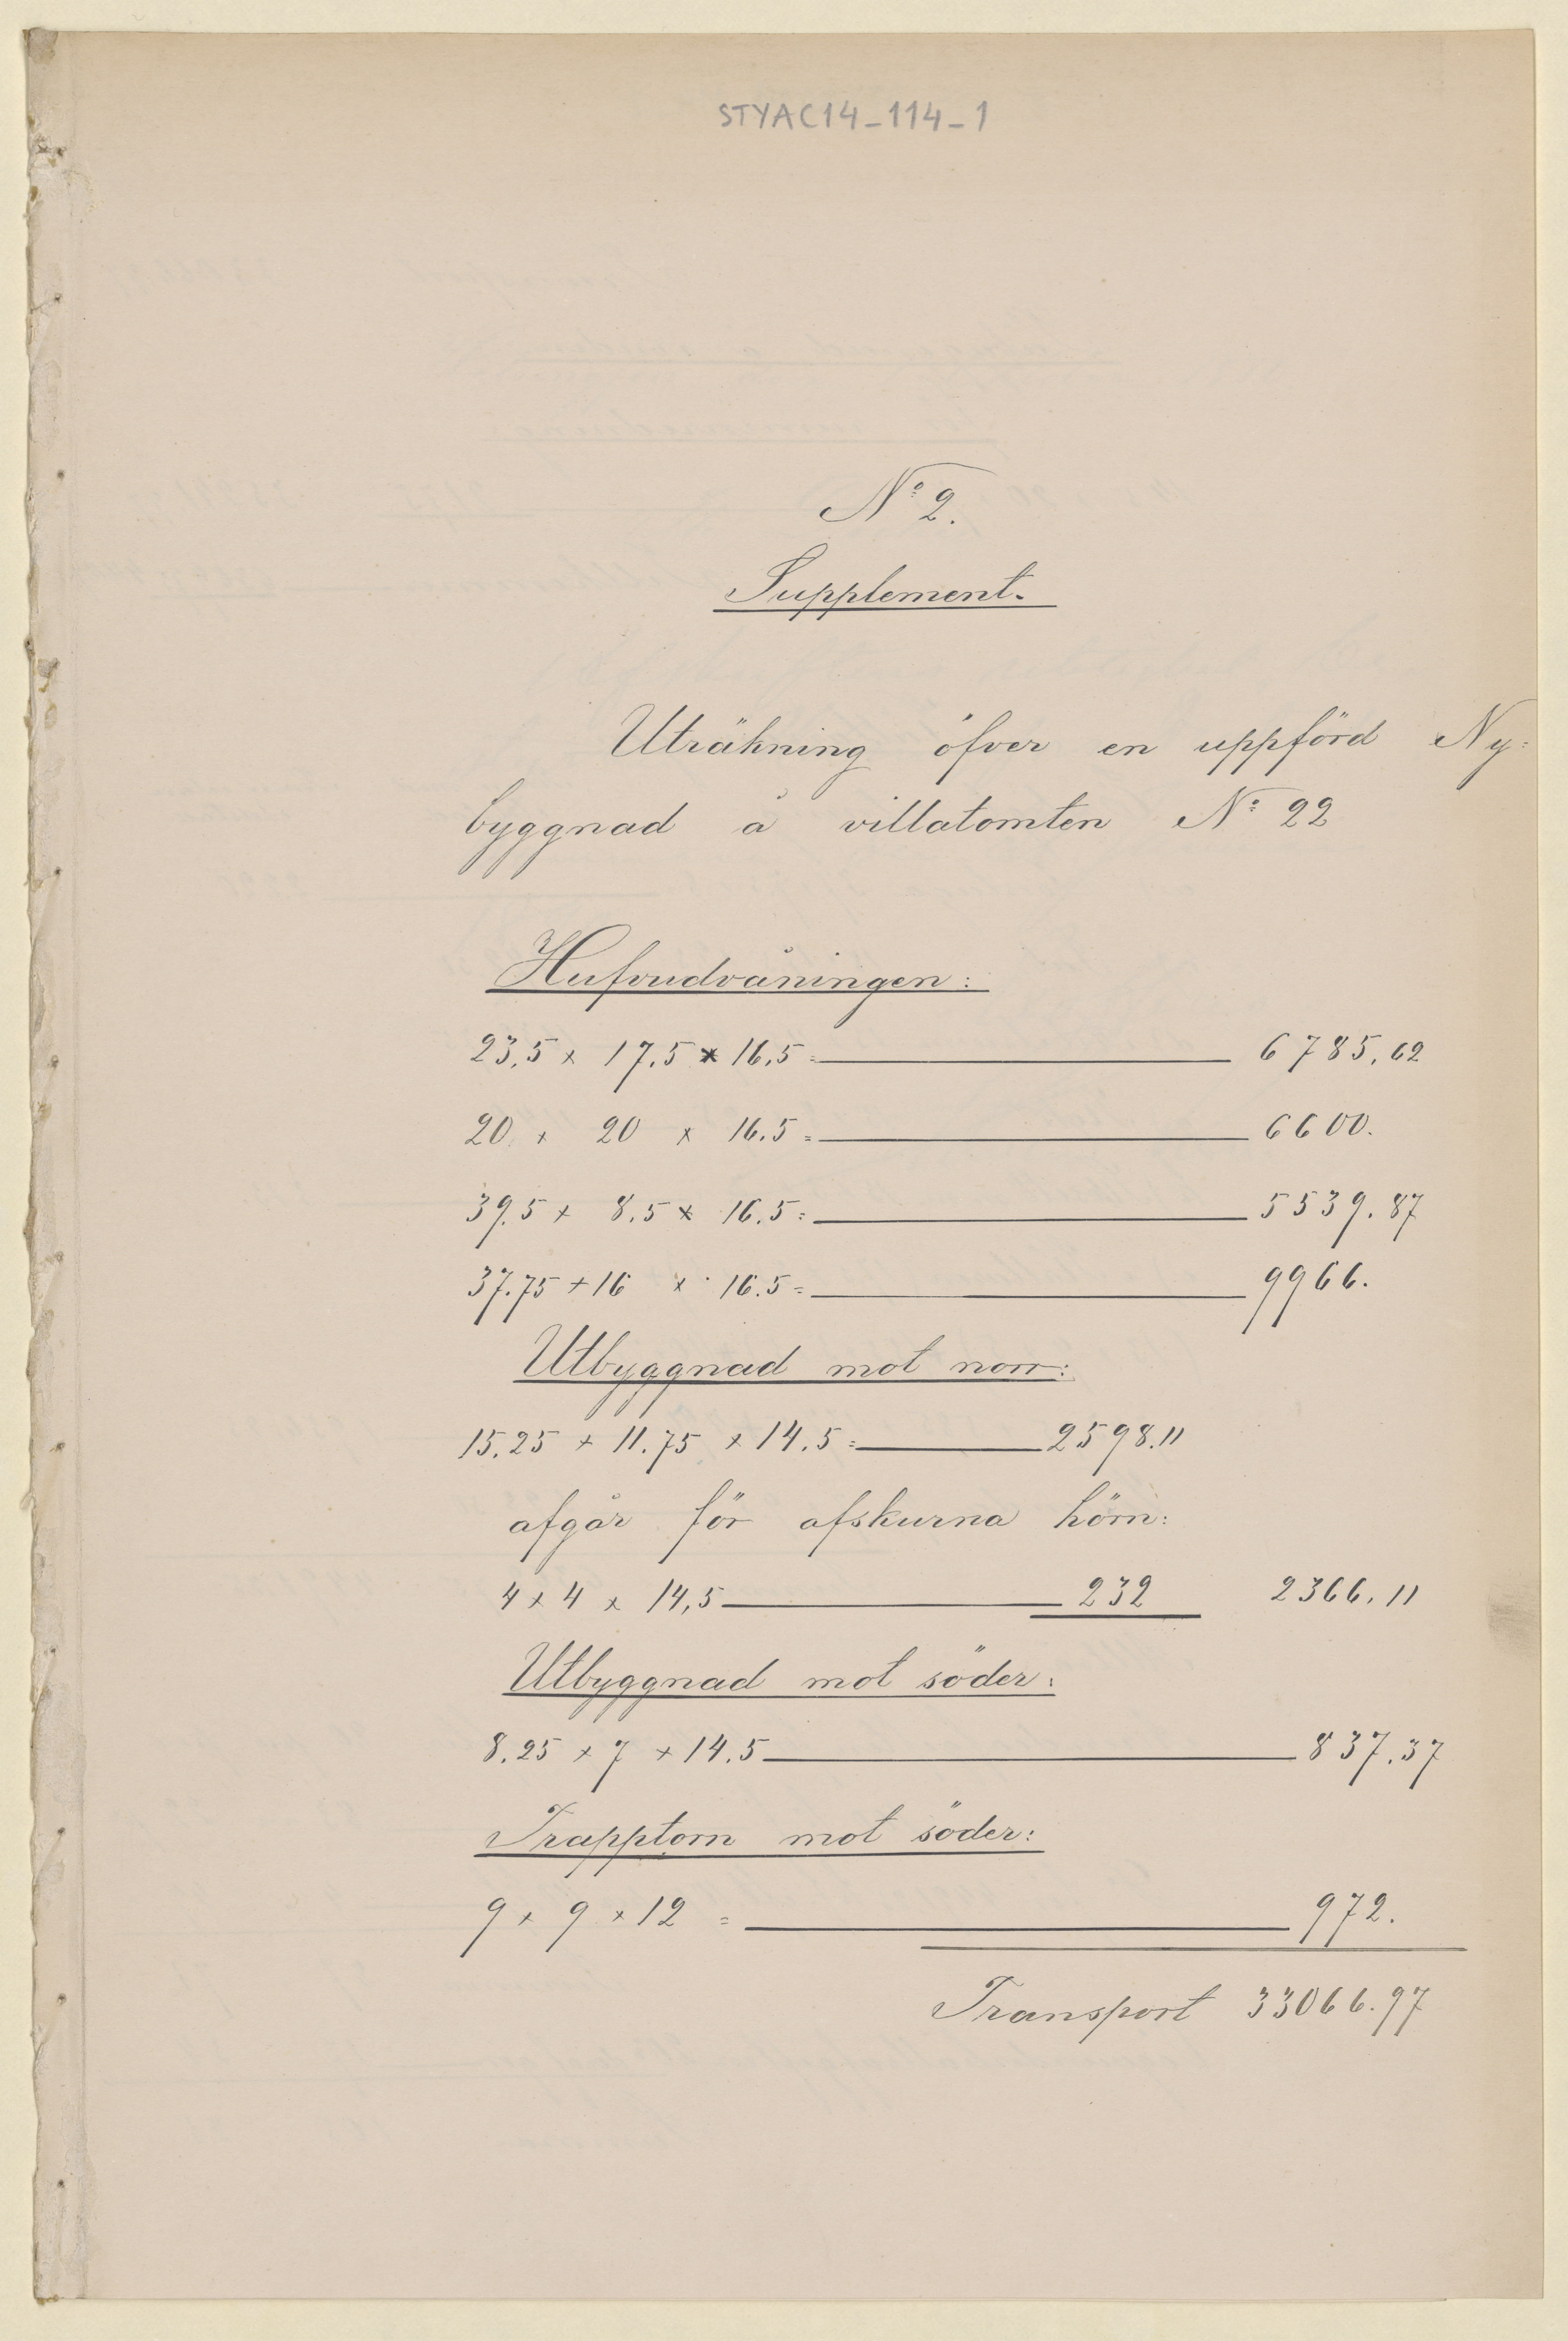 STYAC14-114-1
Nº 2.
Supplement.
Uträkning öfver en uppförd Ny=
byggnad å villatomten Nº 22
Hufvudvåningen:
23,5 x 17,5 x 16,5 = 6785,62
20 x 20 x 16.5 = 6600.
39.5 x 8.5 x 16.5 = 5539.87
37.75 x 16 x 16.5 = 9966.
Utbyggnad mot norr:
15.25 x 11.75 x 14.5 = 2598.11
afgår för afskurna hörn:
4 x 4 x 14,5 232 2366.11
Utbyggnad mot söder:
8.25 x 7 x 14.5 837.37
Trapptorn mot söder:
9 x 9 x 12 = 972.
Transport 33066.97